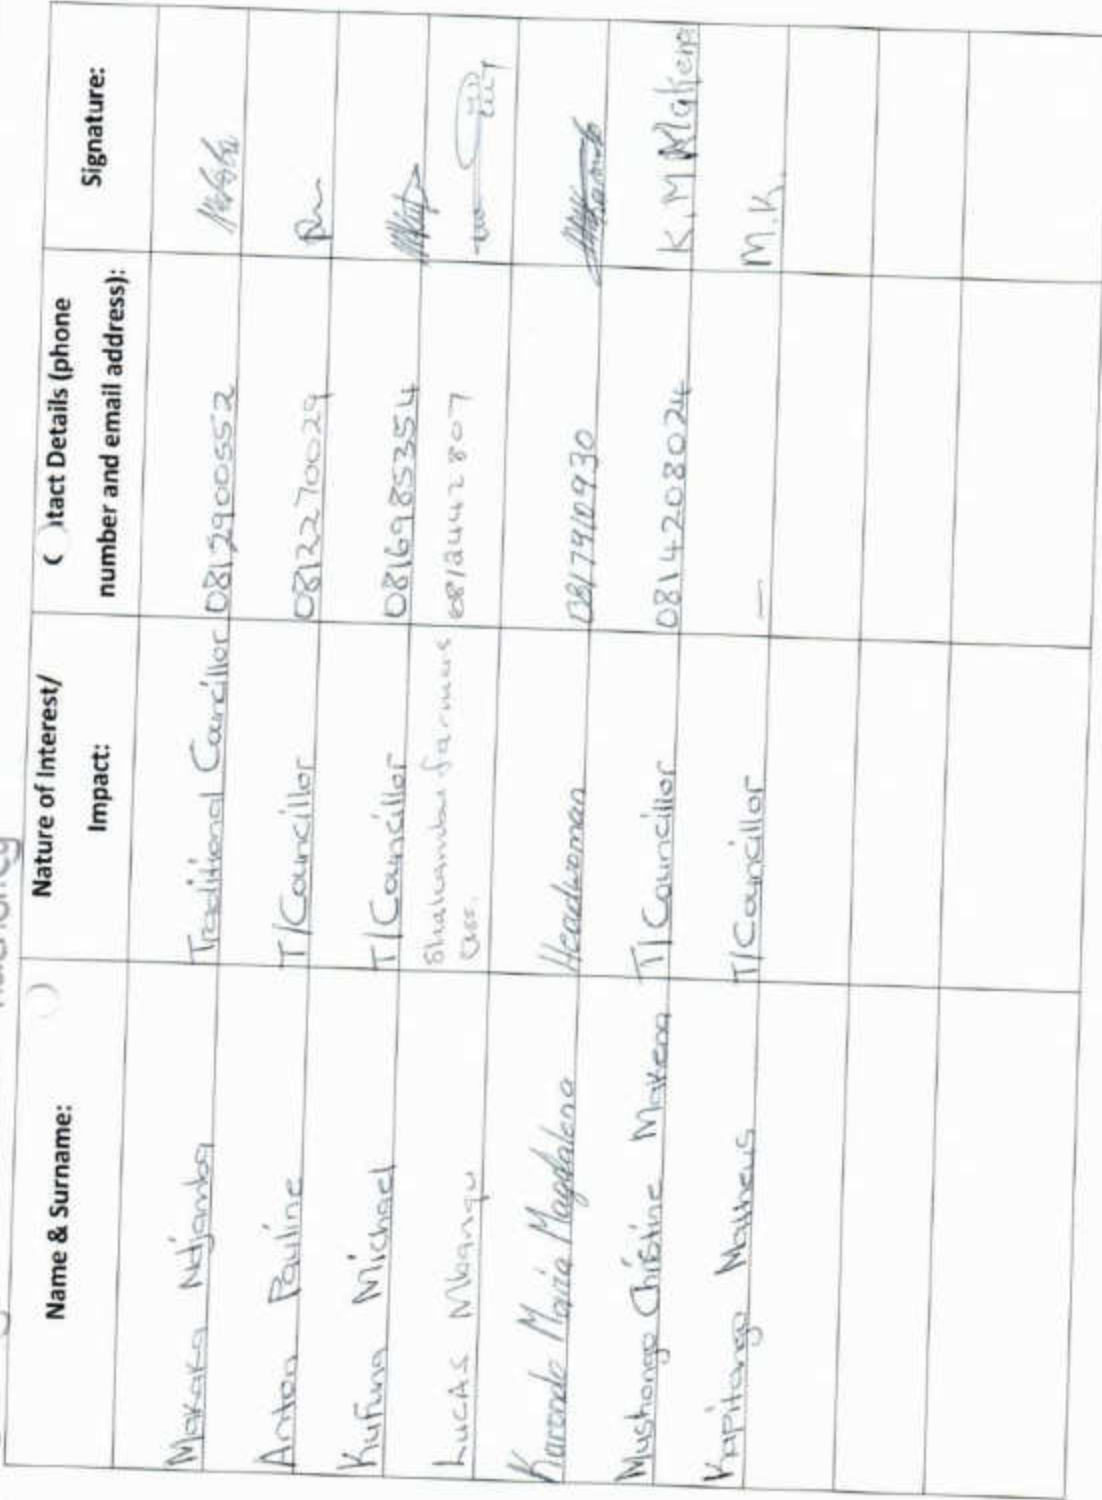 Name & Surname:
Nature of Interest/
Impact:
tact Details (phone
number and email address):
Signature:
Makaka Ndjamba Traditional Councillor 0812900552
Anton Pauline T/Councillor 0812270029
Kufuna Michael T/Councillor 0816985354
Lucas Mbangu Shakambu farmers 0812442807
Ass.
Karondo Maria Magdalena Headwoman 0817910930
Mushongo Christine Makena T/Councillor 0814208024 K.M Makena
Kapitango Matheus T/Councillor — M.K.